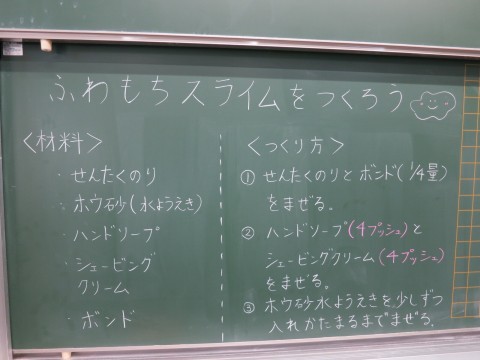 ふわもちスライムをつくろう
〈材料〉
・せんたくのり
・ホウ砂(水ようえき)
・ハンドソープ
・シェービング
クリーム
・ボンド
〈つくり方〉
① せんたくのりとボンド(1/4量)
をまぜる。
② ハンドソープ(4プッシュ)と
シェービングクリーム(4プッシュ)
をまぜる。
③ ホウ砂水ようえきを少しずつ
入れかたまるまでまぜる。